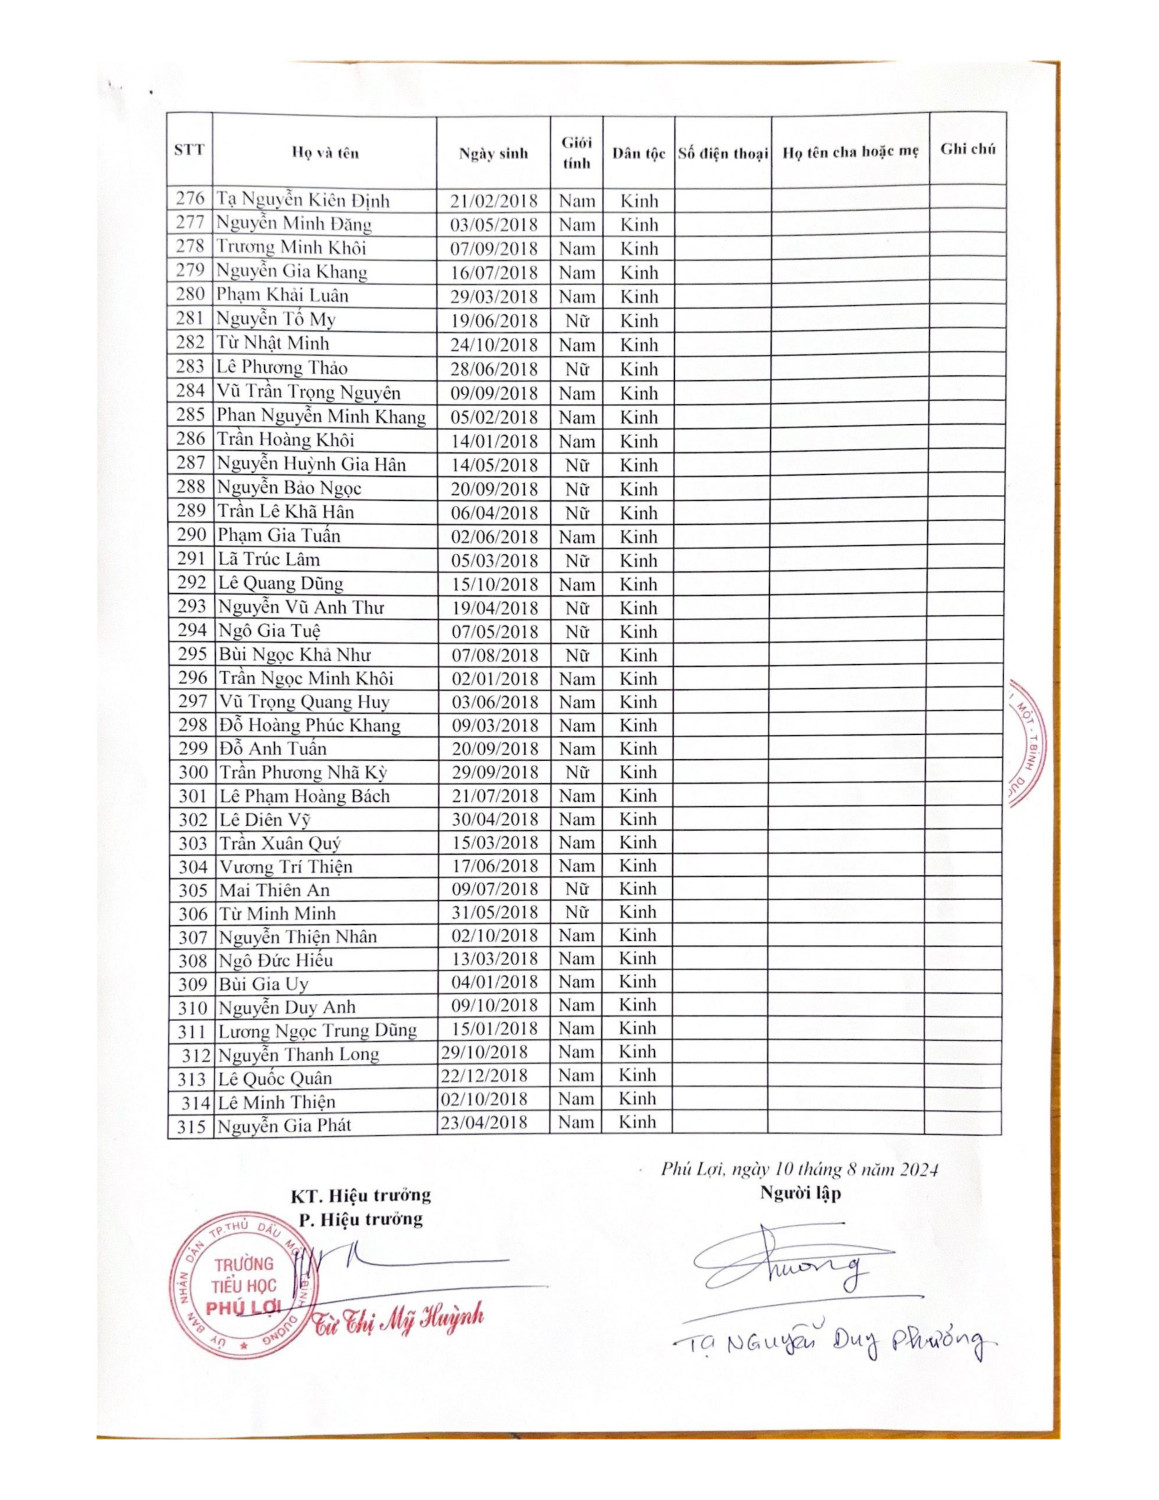 STT Họ và tên Ngày sinh Giới tính Dân tộc Số điện thoại Họ tên cha hoặc mẹ Ghi chú
276 Tạ Nguyễn Kiên Định 21/02/2018 Nam Kinh
277 Nguyễn Minh Đăng 03/05/2018 Nam Kinh
278 Trương Minh Khôi 07/09/2018 Nam Kinh
279 Nguyễn Gia Khang 16/07/2018 Nam Kinh
280 Phạm Khải Luân 29/03/2018 Nam Kinh
281 Nguyễn Tố My 19/06/2018 Nữ Kinh
282 Từ Nhật Minh 24/10/2018 Nam Kinh
283 Lê Phương Thảo 28/06/2018 Nữ Kinh
284 Vũ Trần Trọng Nguyên 09/09/2018 Nam Kinh
285 Phan Nguyễn Minh Khang 05/02/2018 Nam Kinh
286 Trần Hoàng Khôi 14/01/2018 Nam Kinh
287 Nguyễn Huỳnh Gia Hân 14/05/2018 Nữ Kinh
288 Nguyễn Bảo Ngọc 20/09/2018 Nữ Kinh
289 Trần Lê Khã Hân 06/04/2018 Nữ Kinh
290 Phạm Gia Tuấn 02/06/2018 Nam Kinh
291 Lã Trúc Lâm 05/03/2018 Nữ Kinh
292 Lê Quang Dũng 15/10/2018 Nam Kinh
293 Nguyễn Vũ Anh Thư 19/04/2018 Nữ Kinh
294 Ngô Gia Tuệ 07/05/2018 Nữ Kinh
295 Bùi Ngọc Khả Như 07/08/2018 Nữ Kinh
296 Trần Ngọc Minh Khôi 02/01/2018 Nam Kinh
297 Vũ Trọng Quang Huy 03/06/2018 Nam Kinh
298 Đỗ Hoàng Phúc Khang 09/03/2018 Nam Kinh
299 Đỗ Anh Tuấn 20/09/2018 Nam Kinh
300 Trần Phương Nhã Kỳ 29/09/2018 Nữ Kinh
301 Lê Phạm Hoàng Bách 21/07/2018 Nam Kinh
302 Lê Diên Vỹ 30/04/2018 Nam Kinh
303 Trần Xuân Quý 15/03/2018 Nam Kinh
304 Vương Trí Thiện 17/06/2018 Nam Kinh
305 Mai Thiên An 09/07/2018 Nữ Kinh
306 Từ Minh Minh 31/05/2018 Nữ Kinh
307 Nguyễn Thiện Nhân 02/10/2018 Nam Kinh
308 Ngô Đức Hiếu 13/03/2018 Nam Kinh
309 Bùi Gia Uy 04/01/2018 Nam Kinh
310 Nguyễn Duy Anh 09/10/2018 Nam Kinh
311 Lương Ngọc Trung Dũng 15/01/2018 Nam Kinh
312 Nguyễn Thanh Long 29/10/2018 Nam Kinh
313 Lê Quốc Quân 22/12/2018 Nam Kinh
314 Lê Minh Thiện 02/10/2018 Nam Kinh
315 Nguyễn Gia Phát 23/04/2018 Nam Kinh
MỘT - T.BÌNH DƯƠ
Phú Lợi, ngày 10 tháng 8 năm 2024
KT. Hiệu trưởng Người lập
P. Hiệu trưởng
ỦY BAN NHÂN DÂN TP.THỦ DẦU MỘT T.BÌNH DƯƠNG
TRƯỜNG
TIỂU HỌC
PHÚ LỢI
Từ Thị Mỹ Huỳnh
Tạ Nguyễn Duy Phương